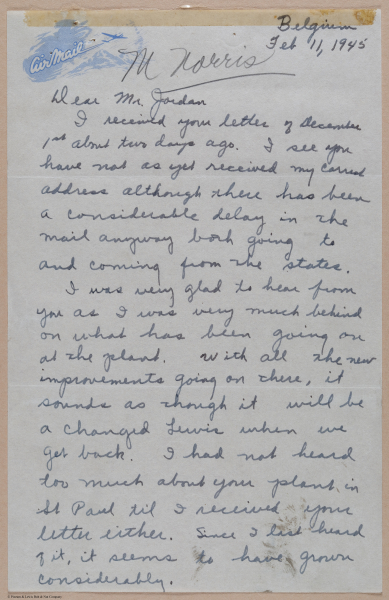 Belgium
Feb 11, 1945
Air Mail
M Norris
Dear Mr. Jordan
I received your letter of December
1st about two days ago. I see you
have not as yet received my correct
address although there has been
a considerable delay in the
mail anyway both going to
and coming from the states.
I was very glad to hear from
you as I was very much behind
on what has been going on
at the plant. With all the new
improvements going on there, it
sounds as though it will be
a changed Lewis when we
get back. I had not heard
too much about your plant in
St Paul til I received your
letter either. Since I last heard
of it, it seems to have grown
considerably.